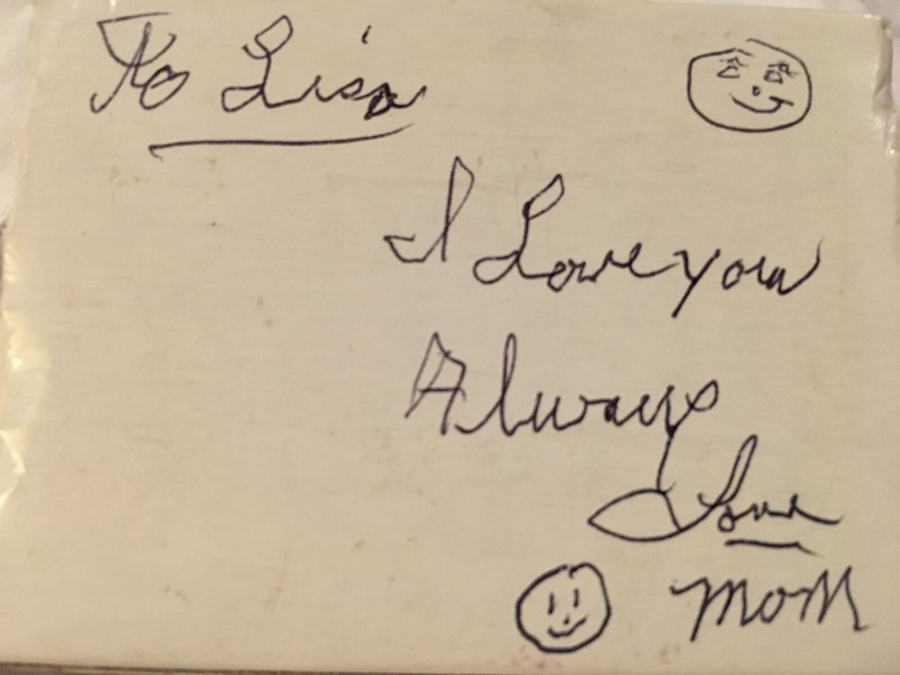 To Lisa
I Love you
Always
Love
Mom